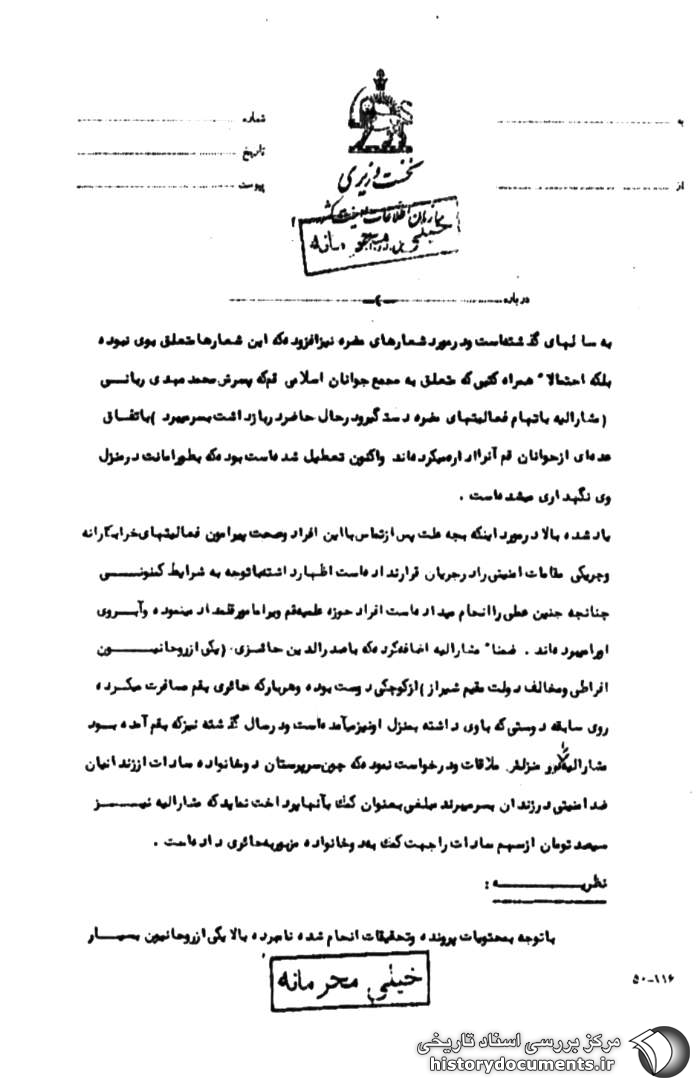 به
شماره
تاریخ
از
پیوست
نخست وزیری
سازمان اطلاعات و امنیت کشور
خیلی محرمانه
درباره
به سالهای گذشته است و در مورد شعارهای مضره نیز افزوده که این شعارها متعلق بوی نبوده
بلکه احتمالاً همراه کتبی که متعلق به مجمع جوانان اسلامی قم که پسرش محمد مهدی ربانی
(مشارالیه باتهام فعالیتهای مضره دستگیر و در حال حاضر در بازداشت بسر میبرد) باتفاق
عده‌ای از جوانان قم آنرا اداره میکرده‌اند و اکنون تعطیل شده است بوده که بطور امانت در منزل
وی نگهداری میشده است .
یاد شده بالا در مورد اینکه بچه علت پس از تماس با این افراد و صحبت پیرامون فعالیتهای خرابکارانه
و چریکی مقامات امنیتی را در جریان قرار نداده است اظهار داشته با توجه به شرایط کنونی
چنانچه چنین عملی را انجام میداده است افراد حوزه علمیه قم ویرا مامور قلمداد مینموده و آبروی
اورا میبرده‌اند . ضمناً مشارالیه اضافه کرده که با صدرالدین حائری (یکی از روحانیون
افراطی و مخالف دولت مقیم شیراز) از کوچکی دوست بوده و هر بار که حائری بقم مسافرت میکرده
روی سابقه دوستی که با وی داشته بمنزل او نیز میآمده است و در سال گذشته نیز که بقم آمده بود
مشارالیه را در منزلش ملاقات و درخواست نموده که چون سرپرستان دو خانواده سادات از زندانیان
ضد امنیتی در زندان بسر میبرند مبلغی بعنوان کمک بآنها پرداخت نماید که مشارالیه نیز
سیصد تومان از سهم سادات را جهت کمک به دو خانواده مزبور به حائری داده است .
نظریه :
با توجه بمحتویات پرونده و تحقیقات انجام شده نامبرده بالا یکی از روحانیون بسیار
خیلی محرمانه
۵۰-۱۱۶
مرکز بررسی اسناد تاریخی
historydocuments.ir